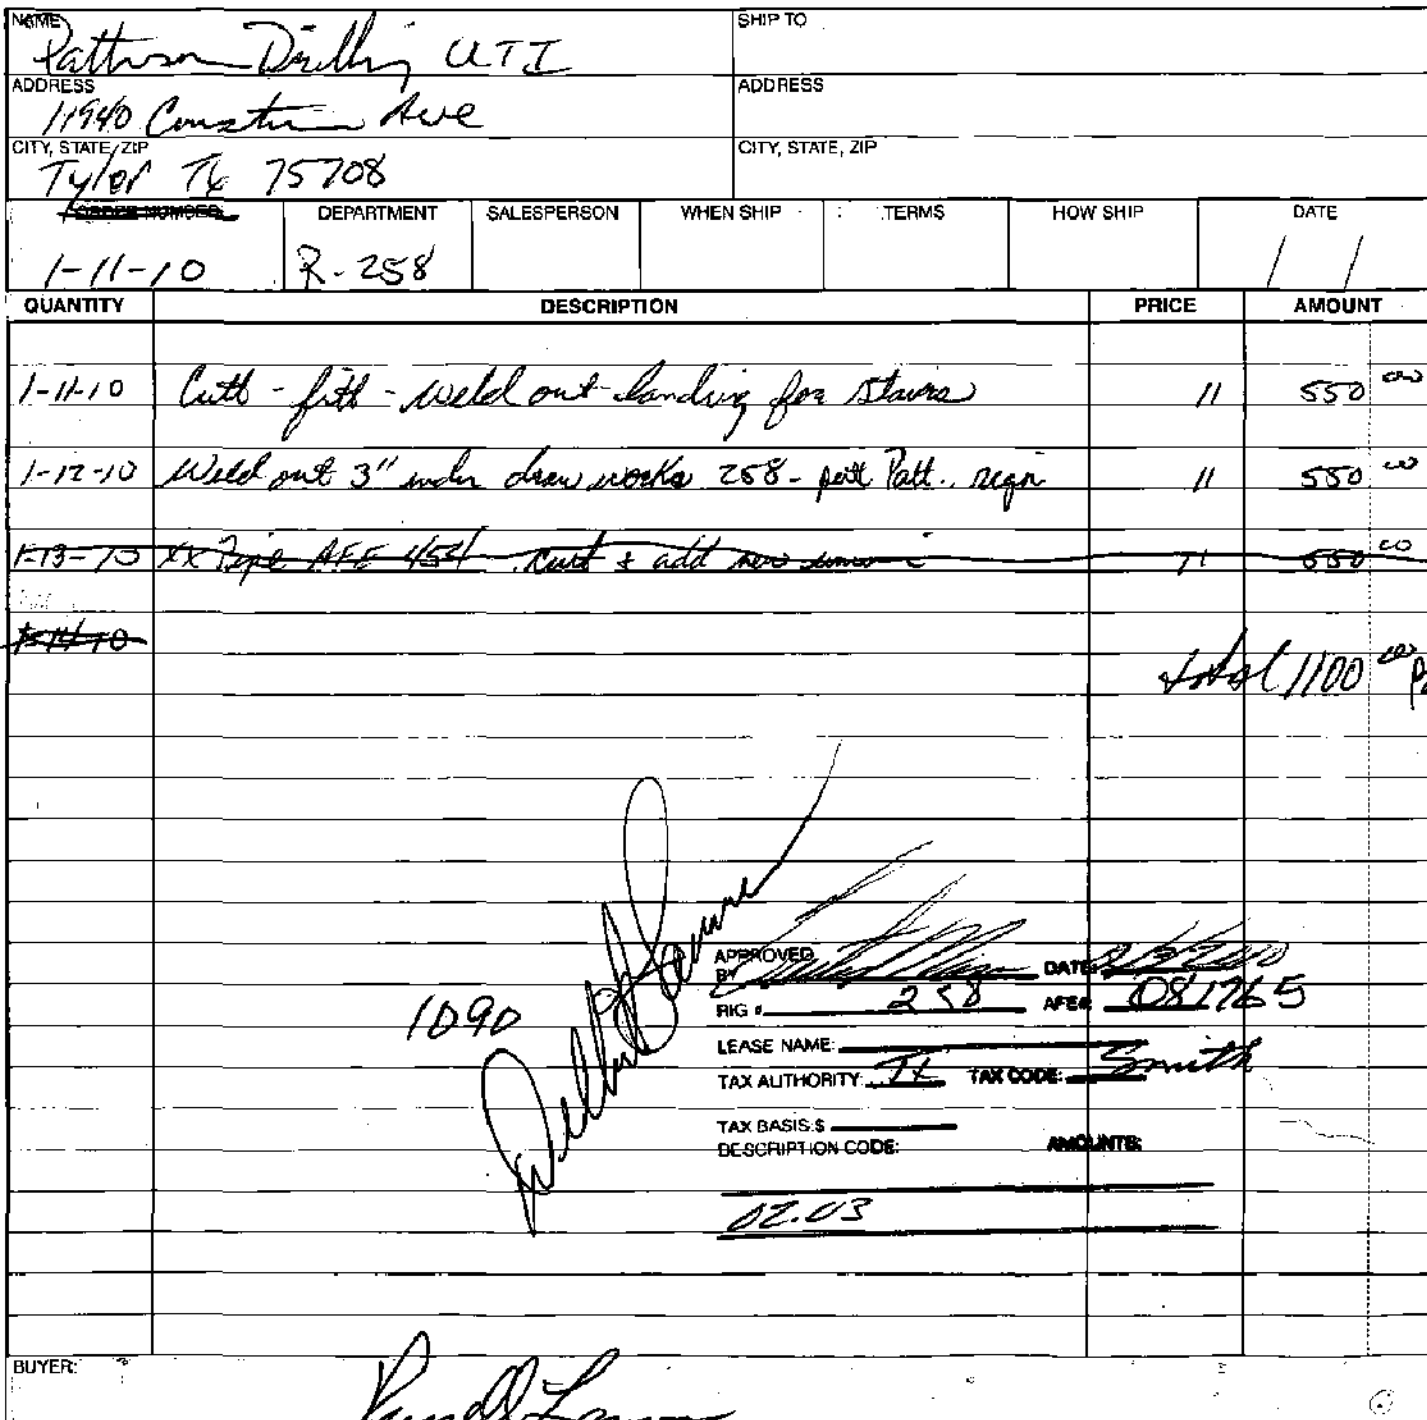 NAME SHIP TO
Patterson Drilling UTI
ADDRESS ADDRESS
11940 Ave
CITY, STATE, ZIP CITY, STATE, ZIP
Tyler Tx 75708
ORDER NUMBER DEPARTMENT SALESPERSON WHEN SHIP TERMS HOW SHIP DATE
1-11-10 R-258 / /
QUANTITY DESCRIPTION PRICE AMOUNT
1-11-10 Cutt - fitt - Weld out landing for stairs 11 550 00
1-12-10 Weld out 3" under draw works 258 - Patt. 11 550 00
1-13-10 XX Pipe AFE & add new 11 550 00
total 1100 00
APPROVED
BY DATE:
1090
RIG # 258 AFE# 081765
LEASE NAME:
TAX AUTHORITY: TX TAX CODE: Smith
TAX BASIS $
DESCRIPTION CODE: AMOUNTS:
02.03
BUYER: